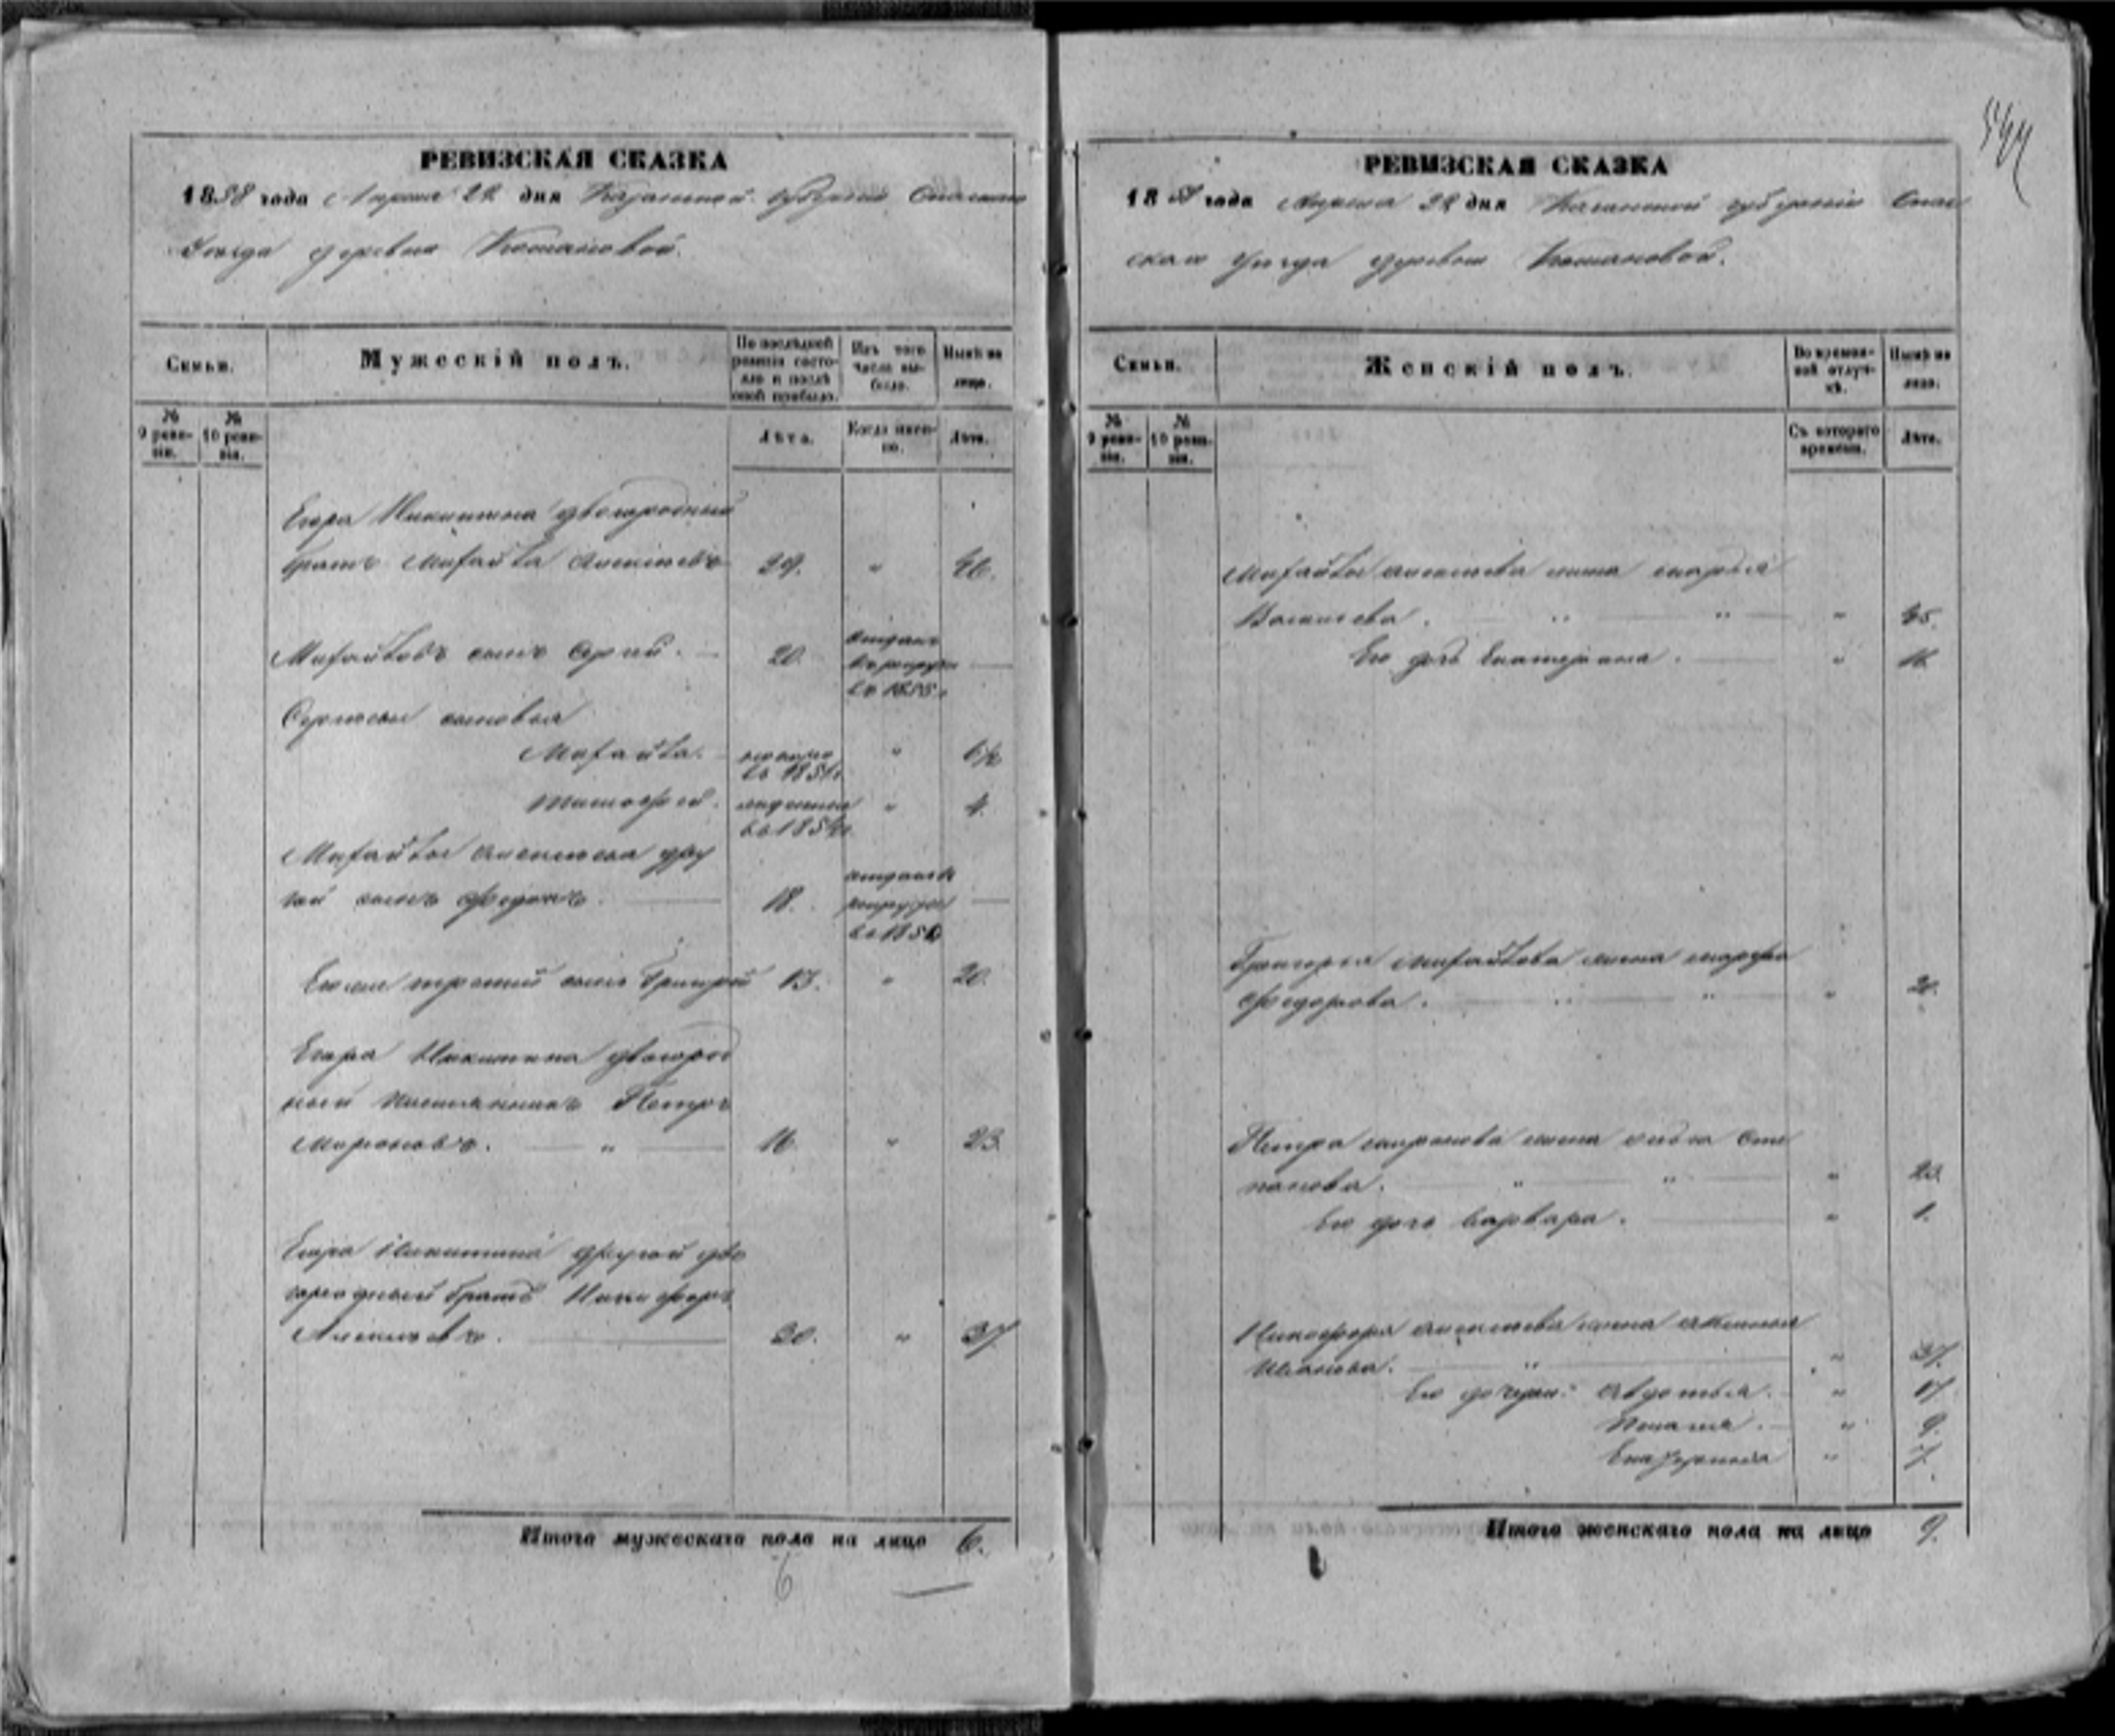 РЕВИЗСКАЯ СКАЗКА
1858 года Апреля 22 дня Казанской губернии Спаскаго
Уезда деревни Комановой.
Семьи.
Мужескій полъ.
По послѣдней ревизіи состояло и послѣ оной прибыло.
Изъ того числа выбыло.
Нынѣ на лицо.
№ 9 ревизіи.
№ 10 ревизіи.
Лѣта.
Когда именно.
Лѣта.
Егора Никитина двоюродный
братъ Михайла Алексѣевъ 29. " 36.
Михайловъ сынъ Сергей. 20. отданъ въ рекруты въ 1855 г.
Сергѣевы сыновья
Михайла. въ 1851 г. " 6½
Тимофей. въ 1854 г. " 4.
Михайлы Алексѣева дру
гой сынъ Федоръ. 18. отданъ въ рекруты
Его же третий сынъ Григорій 13. " 20.
Егора Никитина двоюрод
ный племянникъ Петръ
Мироновъ. " 16. " 23.
Егора Никитина другой дво
юродный братъ Никифоръ
Алексѣевъ. 30. " 37
Итого мужескаго пола на лицо 6.
6
РЕВИЗСКАЯ СКАЗКА
1858 года Апреля 22 дня Казанской губерніи Спас
скаго Уезда деревни Комановой.
Семьи.
Женскій полъ.
Во временной отлучкѣ.
Нынѣ на лицо.
№ 9 ревизіи.
№ 10 ревизіи.
Съ котораго времени.
Лѣта.
Михайлы Алексѣева жена Марья
Васильева. " " " 35.
Его дочь Екатерина. "
Григорья Михайлова жена Марфа
Федорова. " " " 20.
Петра Миронова жена Сте
панова. " " " 23.
Его дочь Варвара. " 1.
Никифора Алексѣева жена
Иванова. " " 37.
Его дочери: Авдотья. " 17
Пелагея. " 9.
Екатерина " 7.
Итого женскаго пола на лицо 9.